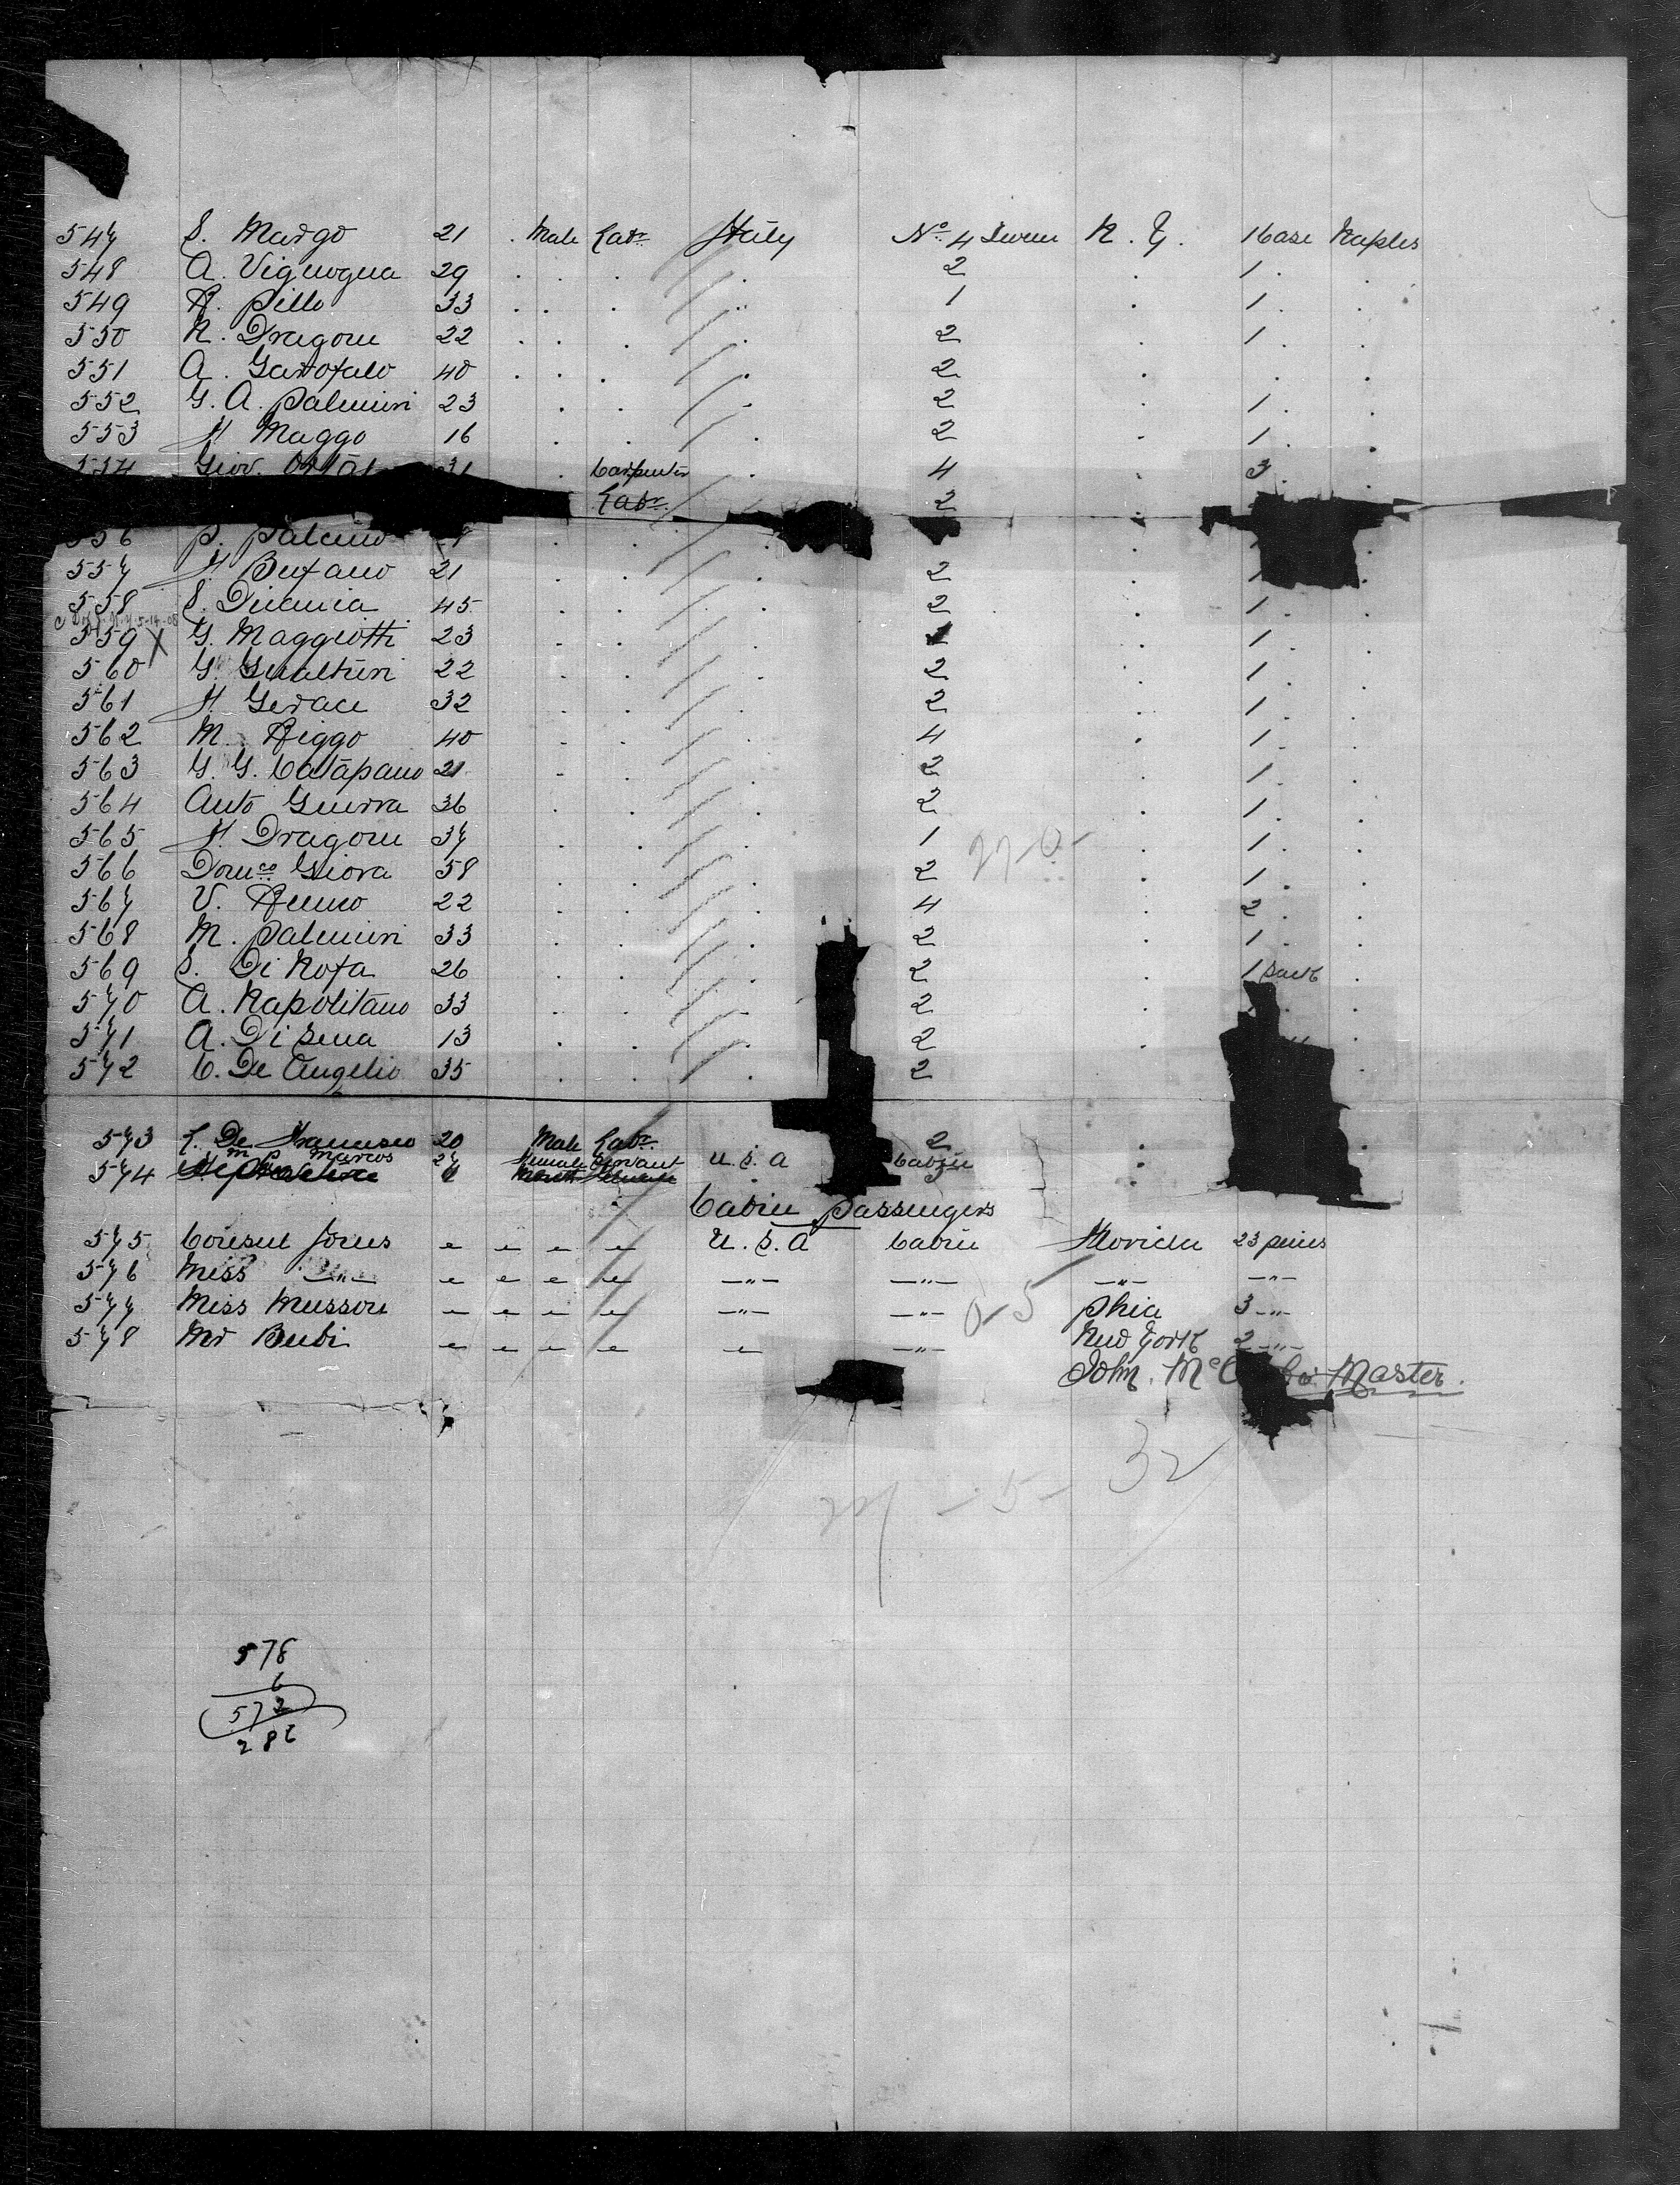 547 S. Margo 21 . Male Labr. Italy No. 4 N. Y. 1 Case Naples
548 A. 29 . . . 2 . 1 .
549 R. Pillo 33 . . . . 1 . 1 . .
550 N. Dragone 22 . . . . 2 . 1 . .
551 A. Garofalo 40 . . . . 2 . . . .
552 G. A. Palmieri 23 . . . 2 . 1 . .
553 F. Maggo 16 . . . 2 . 1 . .
554 Giov. 31 . Carpenter . 4 . 3 . .
Labr. 2 .
556 P. . . . . .
557 F. Bufano 21 . . . 2 . 1 .
558 S. 45 . . . 2 . 1 . .
559 X G. Maggiotti 23 . . . . 1 . .
560 G. Gualtieri 22 . . . 2 . 1 .
561 F. Gerace 32 . . . 2 . 1 . .
562 M. Riggo 40 . . . 4 . 1 . .
563 G. G. Catapano 21 . . . 2 . 1 . .
564 Anto Guerra 36 . . . 2 . 1 . .
565 F. Dragone 37 . . . 1 . 1 . .
566 Domco Giora 58 . . . 2 . 1 . .
567 V. 22 . . . 4 . 2 . .
568 M. Palmieri 33 . . . 2 . 1 . .
569 S. Di Nofa 26 . . . 2 . 1 Sack .
570 A. Napolitano 33 . . . 2 . .
571 A. Di Sena 13 . . . 2 . .
572 C. De Angelis 35 . . . 2 .
573 L. De Francisco 20 Male Labr. 2 . .
574 Marcos 27 Female Servant U. S. A Cabin .
Cabin Passengers
575 Consul Jones U. S. A Cabin Florida 23 pieces
576 Miss —"— —"— —"— —"— —"—
577 Miss Musson —"— —"— Phia 3 —"—
578 Mr Beebi —"— New York 2 —"—
John. Mc Master.
32
578
6
572
286